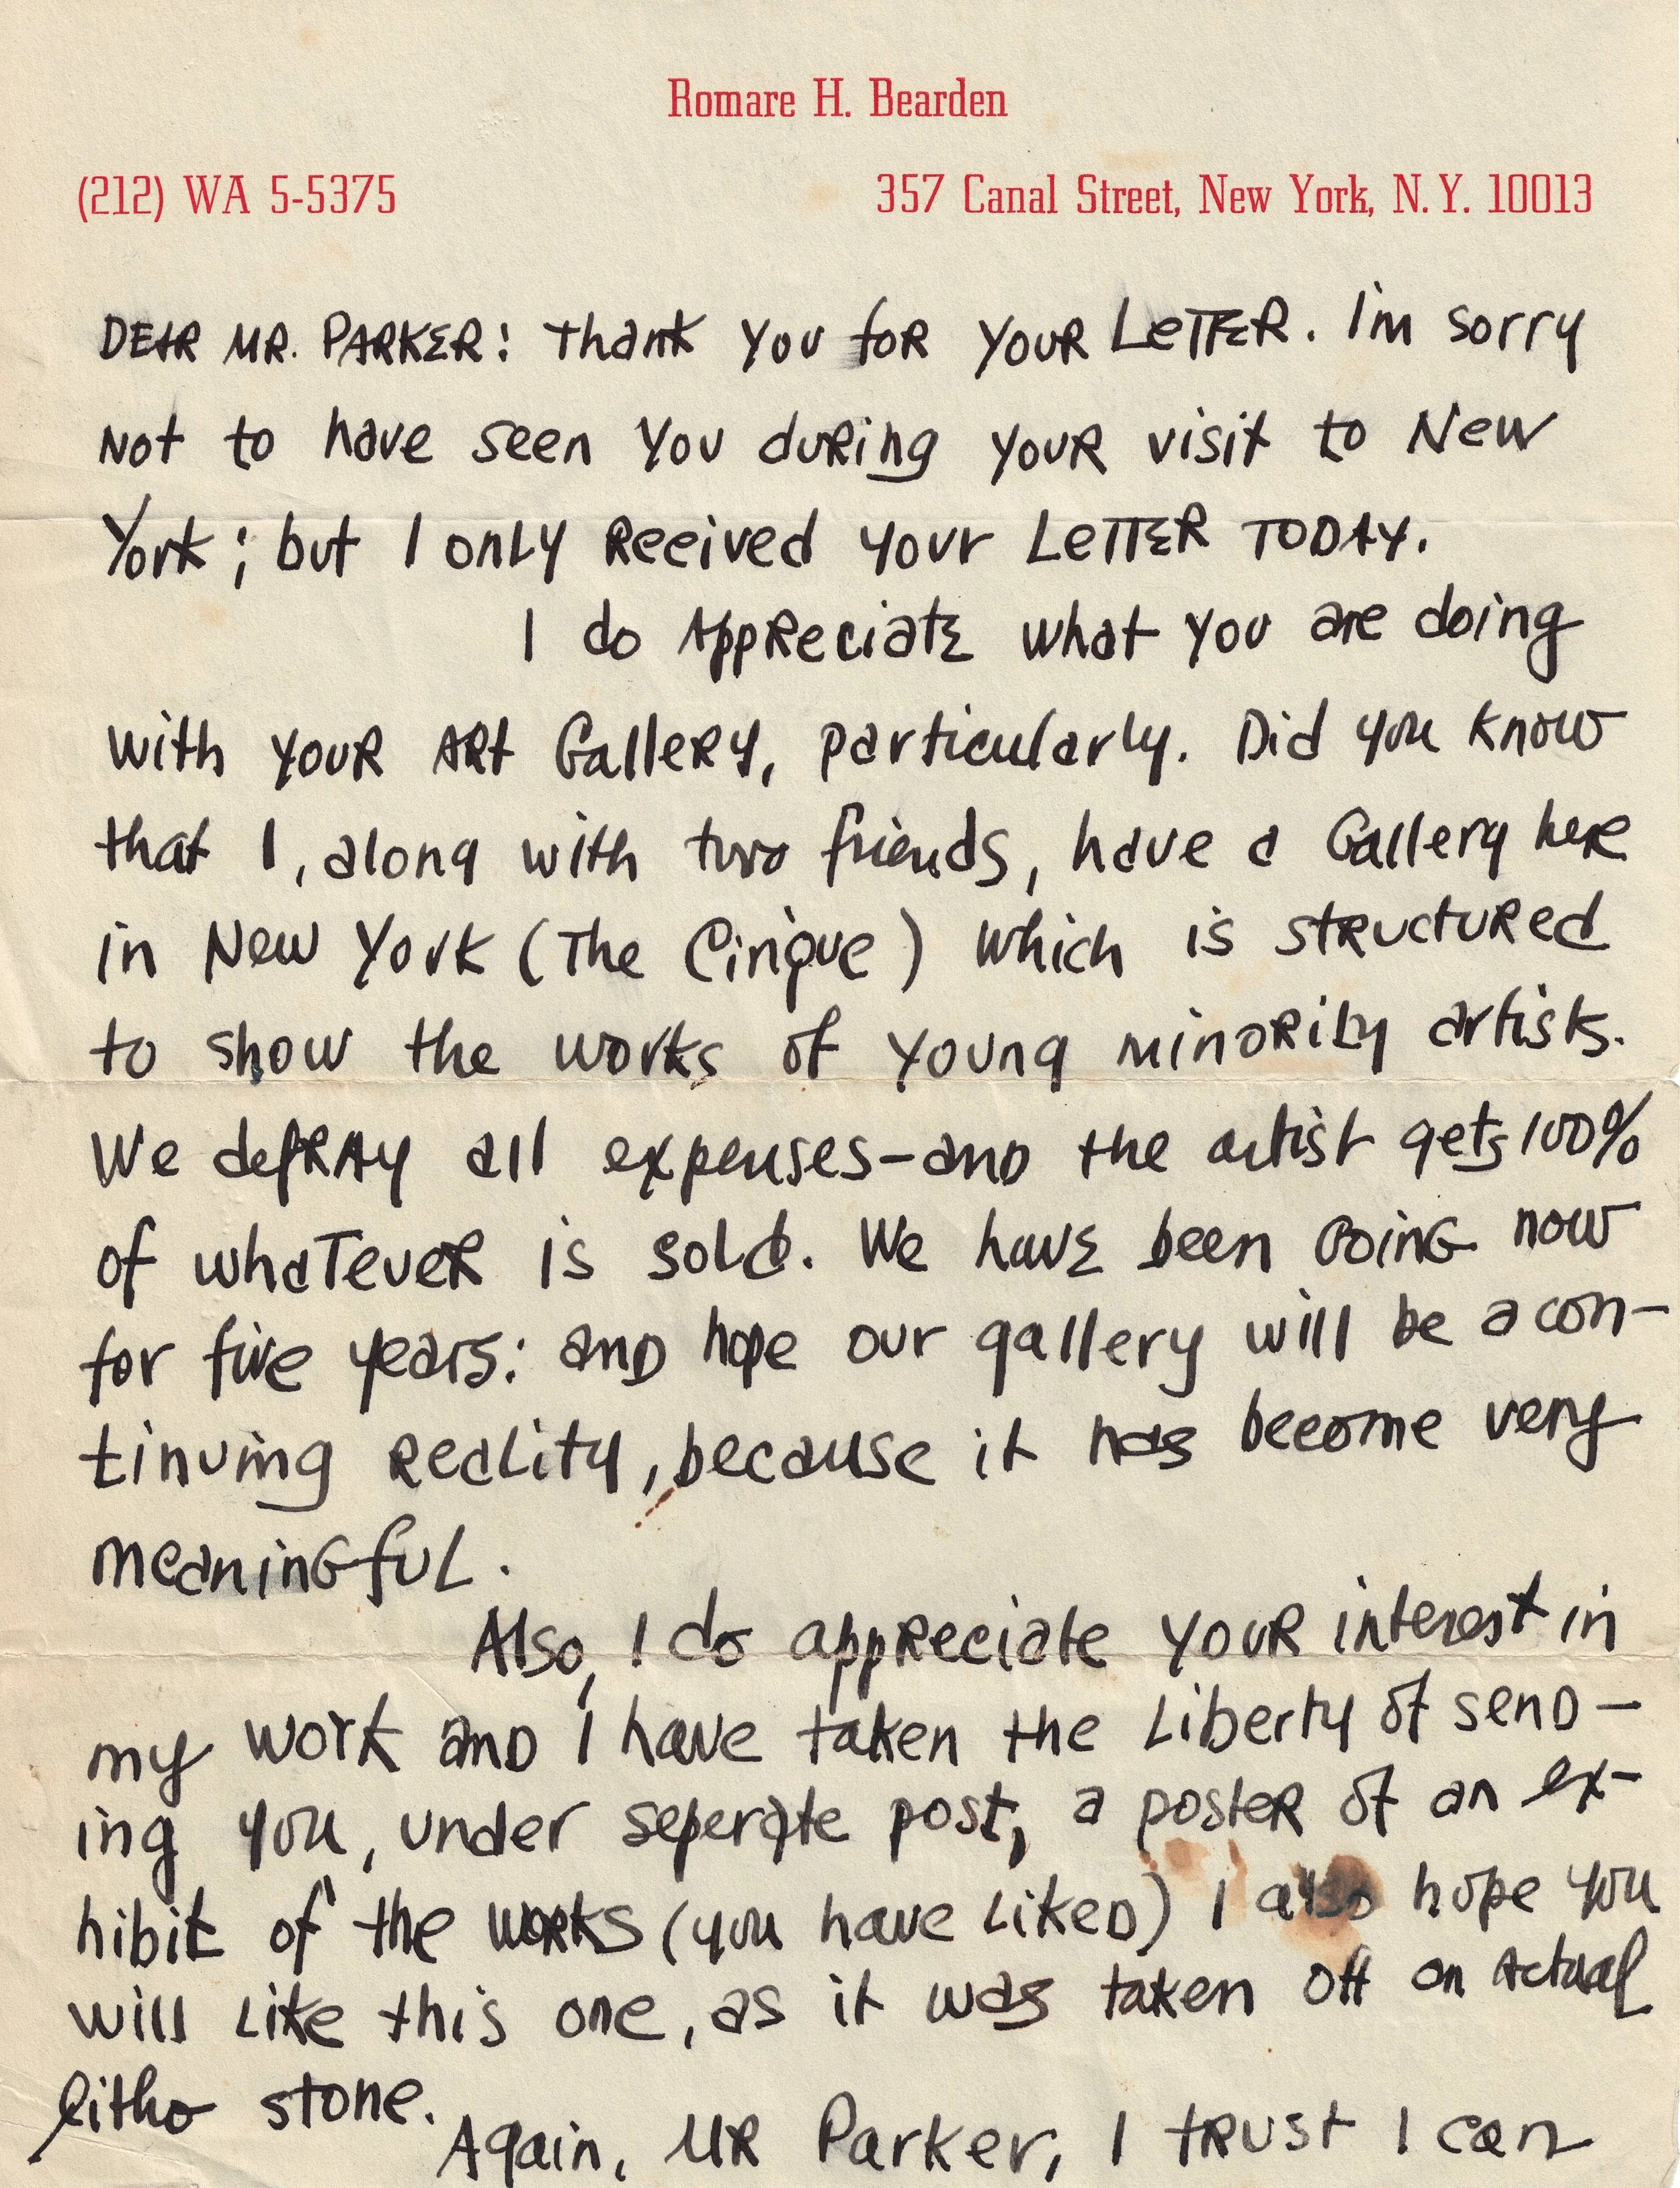 Romare H. Bearden
(212) WA 5-5375
357 Canal Street, New York, N.Y. 10013
DEAR MR. PARKER: Thank you for your letter. I'm sorry
not to have seen you during your visit to New
York; but I only reeived your letter today.
I do appreciate what you are doing
with your art Gallery, particularly. Did you know
that I, along with two friends, have a Gallery here
in New York (The Cinque) which is structured
to show the works of young minority artists.
We defray all expenses—and the artist gets 100%
of whatever is sold. We have been going now
for five years: and hope our gallery will be a con-
tinuing reality, because it has become very
meaningful.
Also, I do appreciate your interest in
my work and I have taken the liberty of send-
ing you, under seperate post, a poster of an ex-
hibit of the works (you have liked) I also hope you
will like this one, as it was taken off an actual
litho stone.
Again, Mr Parker, I trust I can